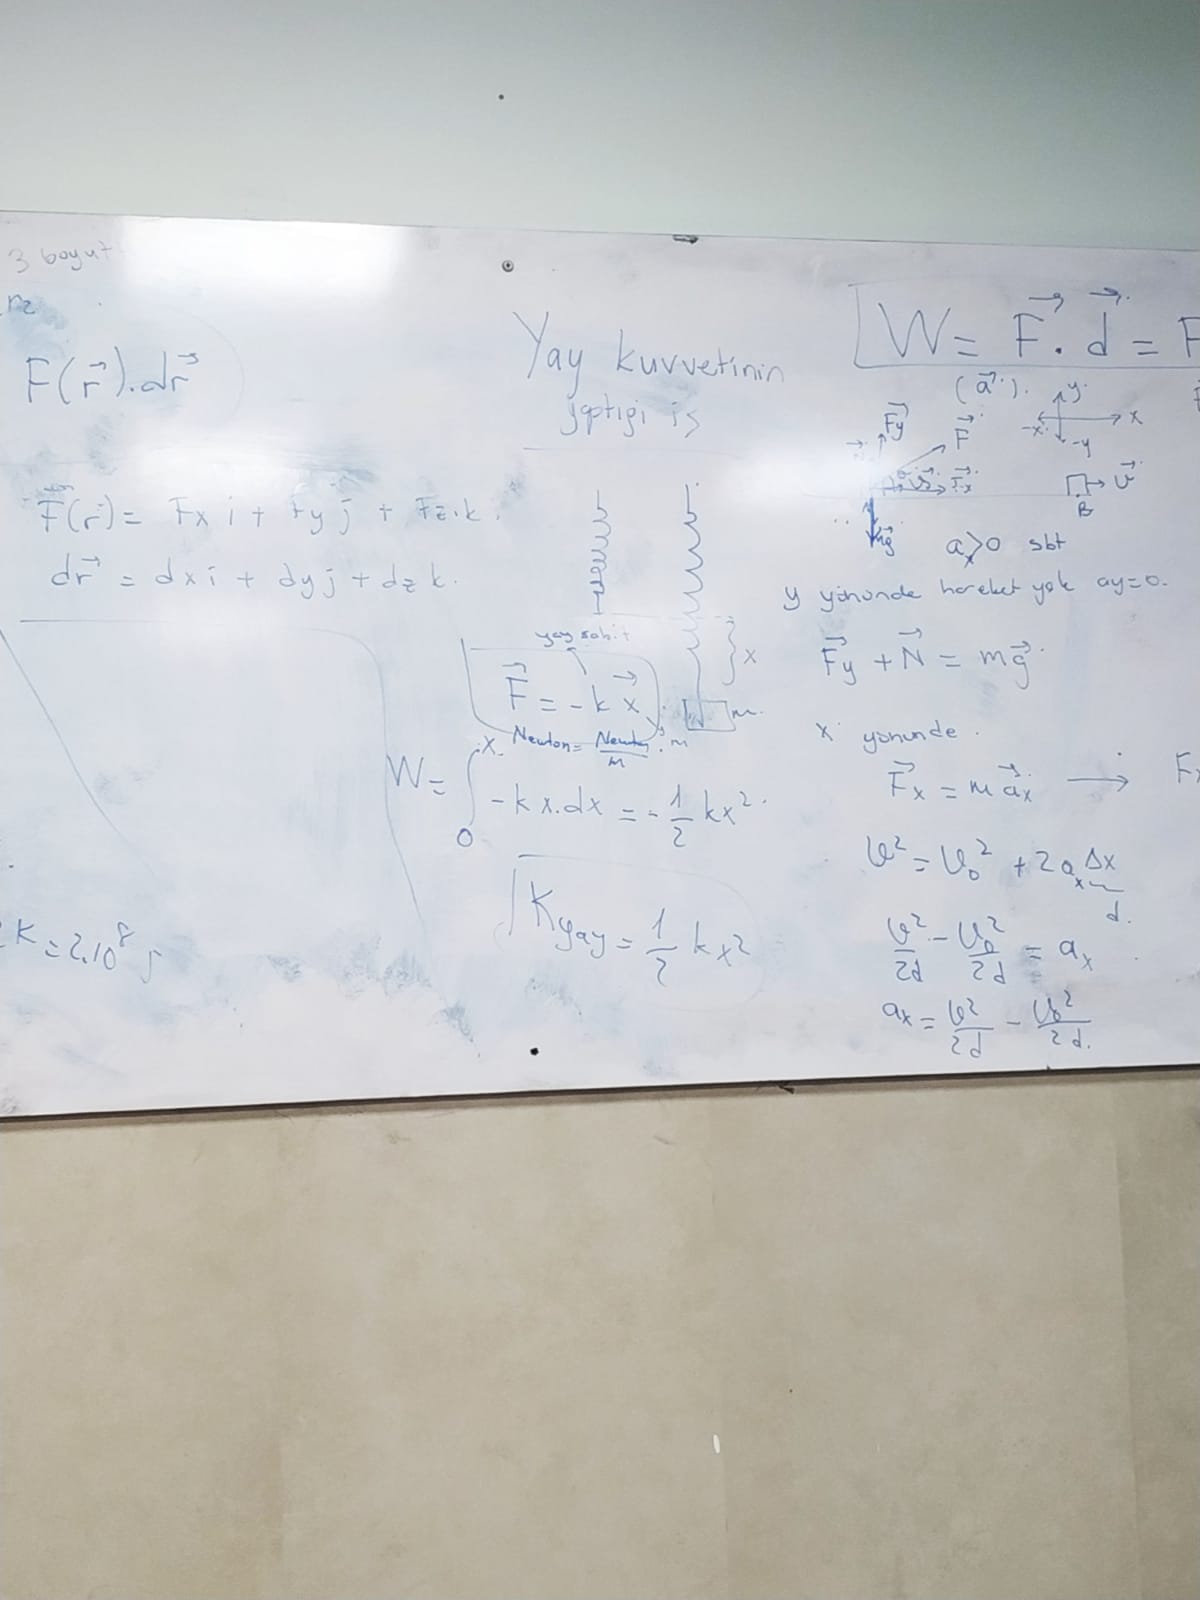 3 boyut
r₂
F(r⃗).dr⃗
F⃗(r) = Fx i + Fy j + Fz.k.
dr⃗ = dxi + dyj + dz k.
K=2.10⁸ J
Yay kuvvetinin
yaptıgi iş
x
m.
yay sabit
F⃗ = -k x⃗
Newton = Newton/m . m
W = ∫₀ˣ -k x.dx = -1/2 kx².
Kyay = 1/2 kx²
W = F⃗ . d⃗ = F
(a⃗).
y
-x x
-y
F⃗y
F⃗
F⃗x
mg⃗
v⃗
B
aₓ>0 sbt
y yönünde hareket yok ay=0.
F⃗y + N⃗ = mg⃗
x yönünde.
F⃗x = m a⃗x → Fx
v² = v₀² + 2aₓ Δx
d.
v²/2d - v₀²/2d = ax
ax = v²/2d - v₀²/2d.